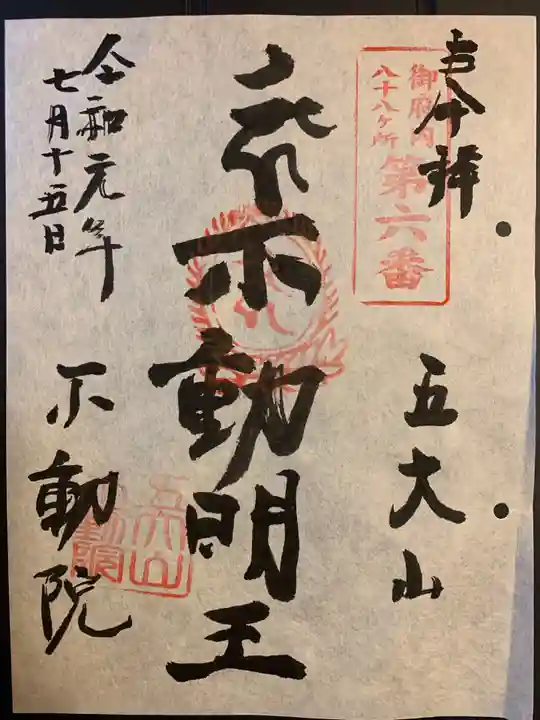 奉拝
御府内
八十八ヶ所
第六番
五大山
不動明王
令和元年
七月十五日
不動院